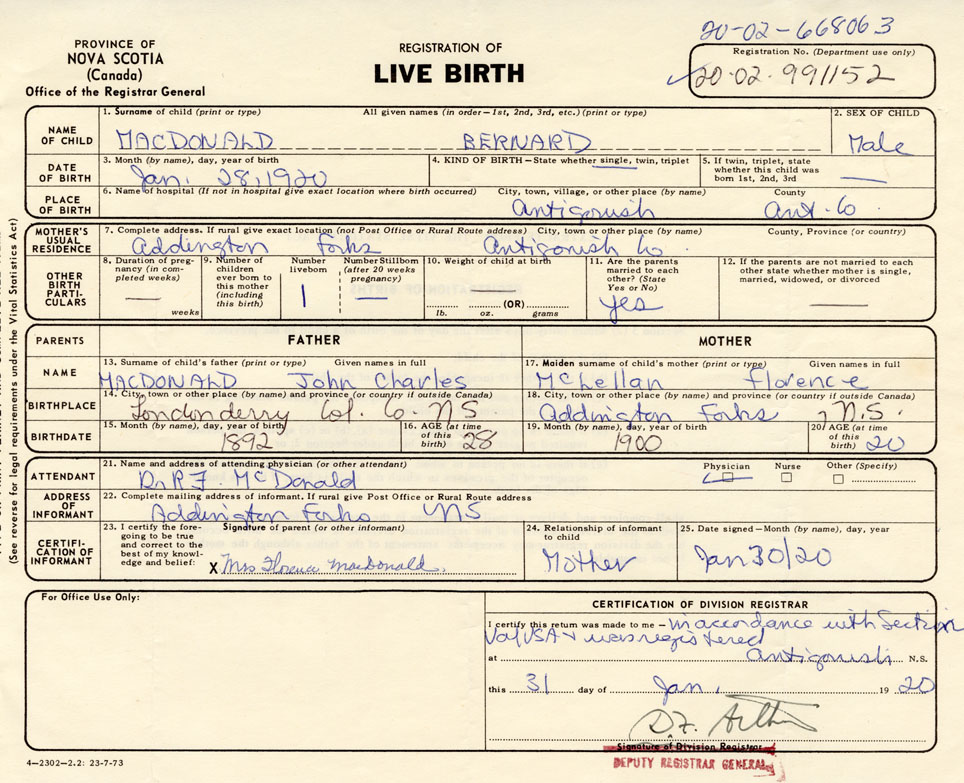 20-02-668063
PROVINCE OF
NOVA SCOTIA
(Canada)
Office of the Registrar General
REGISTRATION OF
LIVE BIRTH
Registration No. (Department use only)
20-02-991152
NAME OF CHILD
1. Surname of child (print or type) All given names (in order—1st, 2nd, 3rd, etc.) (print or type)
MACDONALD BERNARD
2. SEX OF CHILD
Male
DATE OF BIRTH
3. Month (by name), day, year of birth
Jan. 28, 1920
4. KIND OF BIRTH—State whether single, twin, triplet
5. If twin, triplet, state whether this child was born 1st, 2nd, 3rd
—
PLACE OF BIRTH
6. Name of hospital (If not in hospital give exact location where birth occurred) City, town, village, or other place (by name) County
Antigonish Ant. Co
MOTHER'S USUAL RESIDENCE
7. Complete address. If rural give exact location (not Post Office or Rural Route address) City, town or other place (by name) County, Province (or country)
Addington Forks Antigonish Co.
OTHER BIRTH PARTICULARS
8. Duration of pregnancy (in completed weeks)
— weeks
9. Number of children ever born to this mother (including this birth)
Number liveborn
1
Number Stillborn (after 20 weeks pregnancy)
—
10. Weight of child at birth
— (OR)
lb. oz. grams
11. Are the parents married to each other? (State Yes or No)
yes
12. If the parents are not married to each other state whether mother is single, married, widowed, or divorced
—
PARENTS FATHER MOTHER
NAME
13. Surname of child's father (print or type) Given names in full
MACDONALD John Charles
17. Maiden surname of child's mother (print or type) Given names in full
McLellan Florence
BIRTHPLACE
14. City, town or other place (by name) and province (or country if outside Canada)
Londonderry Col. Co. NS
18. City, town or other place (by name) and province (or country if outside Canada)
Addington Forks, N.S.
BIRTHDATE
15. Month (by name), day, year of birth
1892
16. AGE (at time of this birth)
28
19. Month (by name), day, year of birth
1900
20. AGE (at time of this birth)
20
ATTENDANT
21. Name and address of attending physician (or other attendant)
Dr RF McDonald
Physician Nurse Other (Specify)
ADDRESS OF INFORMANT
22. Complete mailing address of informant. If rural give Post Office or Rural Route address
Addington Forks NS
CERTIFICATION OF INFORMANT
23. I certify the foregoing to be true and correct to the best of my knowledge and belief:
Signature of parent (or other informant)
X Mrs Florence MacDonald.
24. Relationship of informant to child
Mother
25. Date signed—Month (by name), day, year
Jan 30/20
For Office Use Only:
CERTIFICATION OF DIVISION REGISTRAR
I certify this return was made to me — in accordance with Section
VSA & was registered
at Antigonish N.S.
this 31 day of Jan. 19 20
Signature of Division Registrar
DEPUTY REGISTRAR GENERAL
4—2302—2.2: 23-7-73
(See reverse for legal requirements under the Vital Statistics Act)